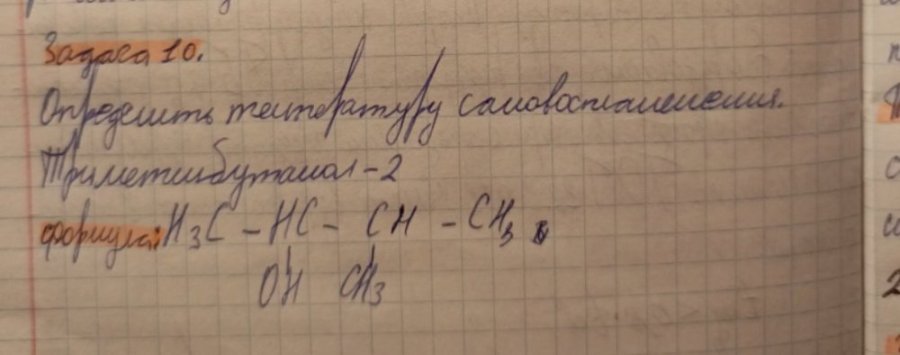 Задача 10.
Определить температуру самовоспламенения.
Триметилбутанол-2
формула: H₃C – HC – CH – CH₃
OH CH₃